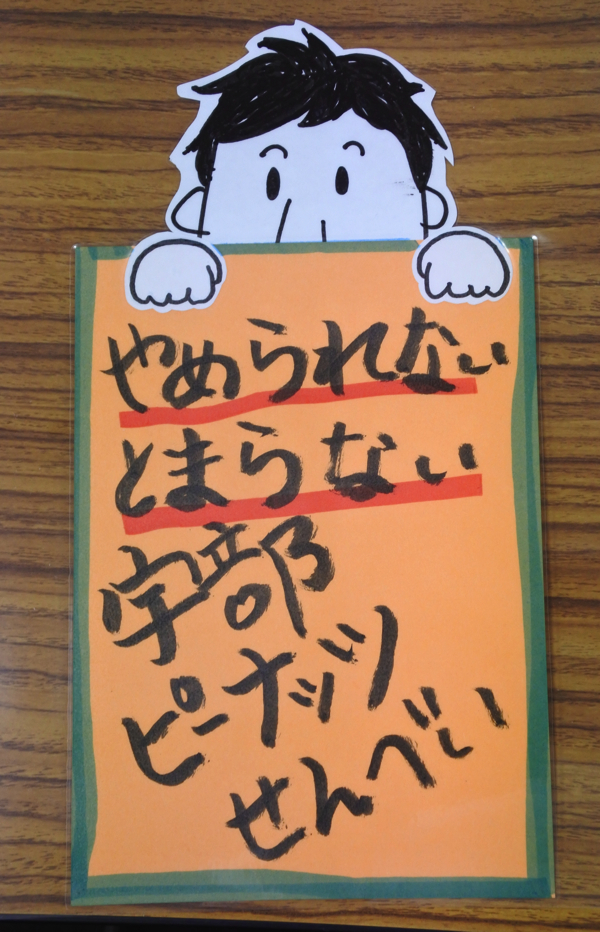 やめられない
とまらない
宇部
ピーナッツ
せんべい